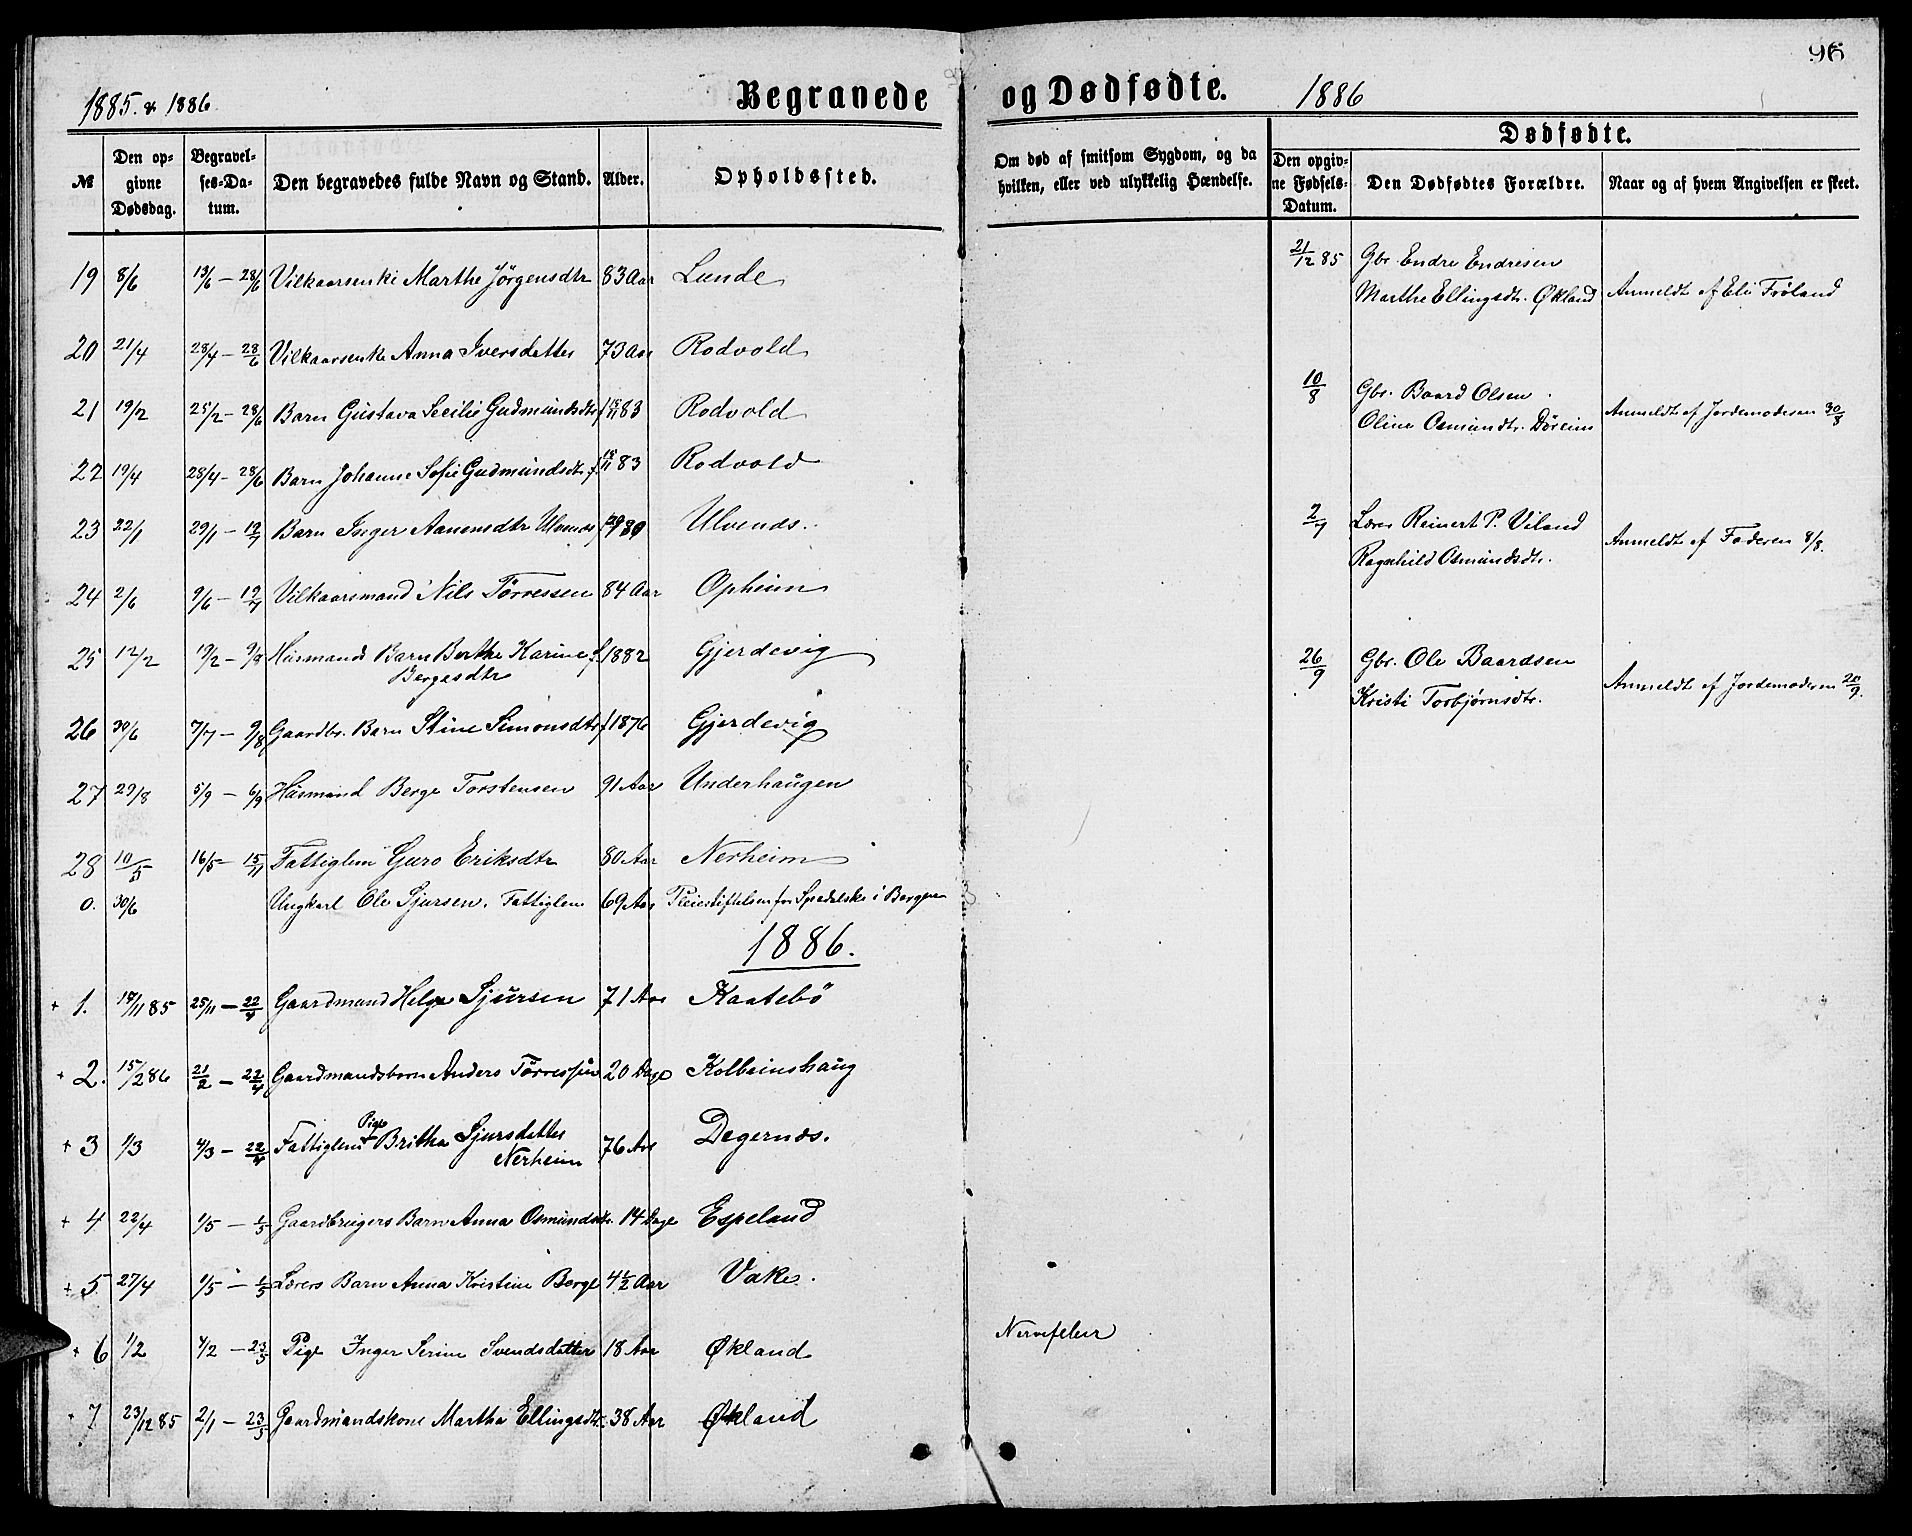 1885 & 1886
Begravede
№
Den opgivne Dødsdag.
Begravelses-Datum.
Den begravedes fulde Navn og Stand.
Alder.
Opholdssted.
19 8/6 13/6 – 28/6 Vilkaarsenke Marthe Jørgensdtr 83 Aar Lunde
20 21/4 28/4 – 28/6 Vilkaarsenke Anna Iversdatter 73 Aar Rodvold
21 19/2 25/2 – 28/6 Barn Gustava Secilie Gudmundsdtr 83 Rodvold
22 19/4 28/4 – 28/6 Barn Johanne Sofie Gudmundsdtr f. 18/11 83 Rodvold
23 22/1 29/1 – 12/7 Barn Inger Aanensdtr Ulvenæs Ulvenæs.
24 2/6 9/6 – 19/7 Vilkaarsmand Nils Tørressen 84 Aar Opheim
25 12/2 19/2 – 9/8 Husmands Barn Berthe Karine f. 1882 Gjerdevig
Bergesdtr
26 30/6 7/7 – 9/8 Gaardbr. Barn Stine Simonsdtr f 1876 Gjerdevig
27 29/8 5/9 – 6/9 Husmand Berge Torstensen 91 Aar Underhaugen
28 10/5 16/5 – 15/11 Fattiglem Guro Eriksdtr 80 Aar Nerheim
0. 30/6 Ungkarl Ole Sjursen. Fattiglem 69 Aar Pleiestiftelsen for Spedalske i Bergen
1886.
+ 1. 18/11 85 25/11 – 22/4 Gaardmand Helge Sjursen 71 Aar Kaatebø
+ 2. 15/2 86 21/2 – 22/4 Gaardmandsbarn Anders Tørressen 20 Dage Kolbeinshaug
+ 3 1/3 4/3 – 22/4 Fattiglem Pige Britha Sjursdatter 76 Aar Degernæs.
Nerheim
+ 4 22/4 1/5 – 1/5 Gaardbrugers Barn Anna Osmundsdtr. 14 Dage Espeland
+ 5. 27/4 1/5 – 1/5 Lærers Barn Anna Kristine Berge 4½ Aar Vake.
+ 6 1/2 4/2 – 23/5 Pige Inger Serine Svendsdatter 18 Aar Økland
+ 7 23/12 85 2/1 – 23/5 Gaardmandskone Martha Ellingsdtr. 38 Aar Økland
96
og Dødfødte.
1886
Om død af smitsom Sygdom, og da hvilken, eller ved ulykkelig Hændelse.
Dødfødte.
Den opgivne Fødsels-Datum.
Den Dødfødtes Forældre.
Naar og af hvem Angivelsen er skeet.
21/12 85 Gbr. Endre Endresen
Marthe Ellingsdtr. Økland Anmeldt af Eli Frøland
10/8 Gbr. Baard Olsen
Oline Osmundtr. Døreim Anmeldt af Jordemoderen 30/8
2/7 Lærer Reinert P. Viland
Ragnhild Osmundsdtr. Anmeldt af Faderen 8/8.
26/9 Gbr. Ole Baardsen
Kristi Torbjørnsdtr. Anmeldt af Jordemoderen
Nervefeber